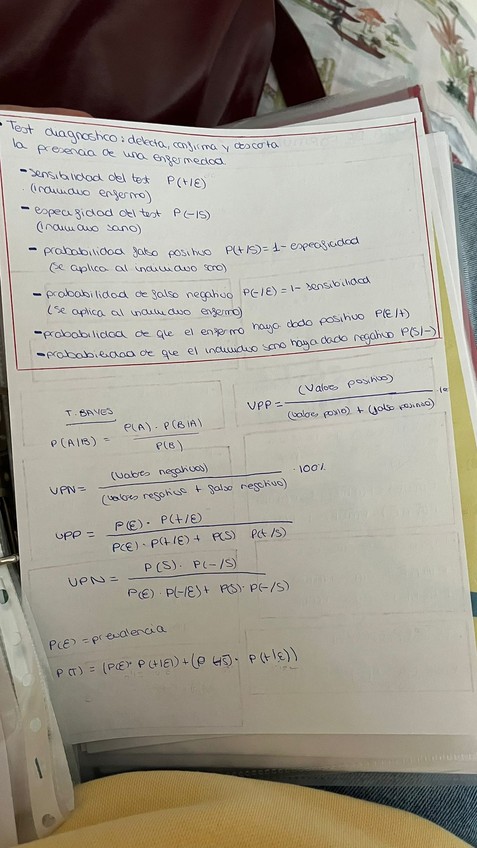 • Test diagnostico: detecta, confirma y descarta
la presencia de una enfermedad
- sensibilidad del test P(+/E)
(individuo enfermo)
- especificidad del test P(-/S)
(individuo sano)
- probabilidad falso positivo P(+/S)=1- especificidad
(se aplica al individuo sano)
- probabilidad de falso negativo P(-/E)=1- sensibilidad
(se aplica al individuo enfermo)
- probabilidad de que el enfermo haya dado positivo P(E/+)
- probabilidad de que el individuo sano haya dado negativo P(S/-)
T. BAYES
P(A/B) = P(A) · P(B/A) / P(B)
VPP = (Valores positivos) / (valores positi) + (falso positivo)
VPN = (valores negativos) / (valores negativos + falso negativo) · 100%
VPP = P(E) · P(+/E) / P(E) · P(+/E) + P(S) P(+/S)
VPN = P(S) · P(-/S) / P(E) · P(-/E) + P(S) · P(-/S)
P(E) = prevalencia
P(T) = (P(E) · P(+/E)) + (P · P(+/E))